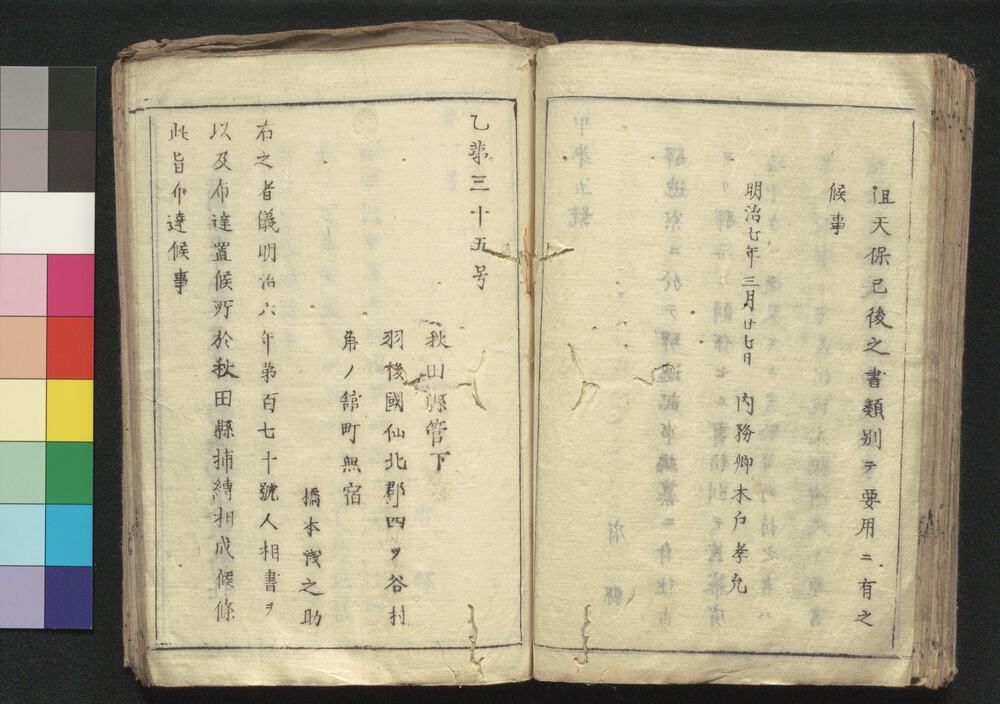 但天保已後之書類別テ要用ニ有之
候事
明治七年三月廿七日 内務卿木戸孝允
乙第三十五号
秋田縣管下
羽後國仙北郡四ツ谷村
角ノ館町無宿
橋本浅之助
右之者儀明治六年第百七十號人相書ヲ
以及布達置候所於秋田縣捕縛相成候條
此旨布達候事